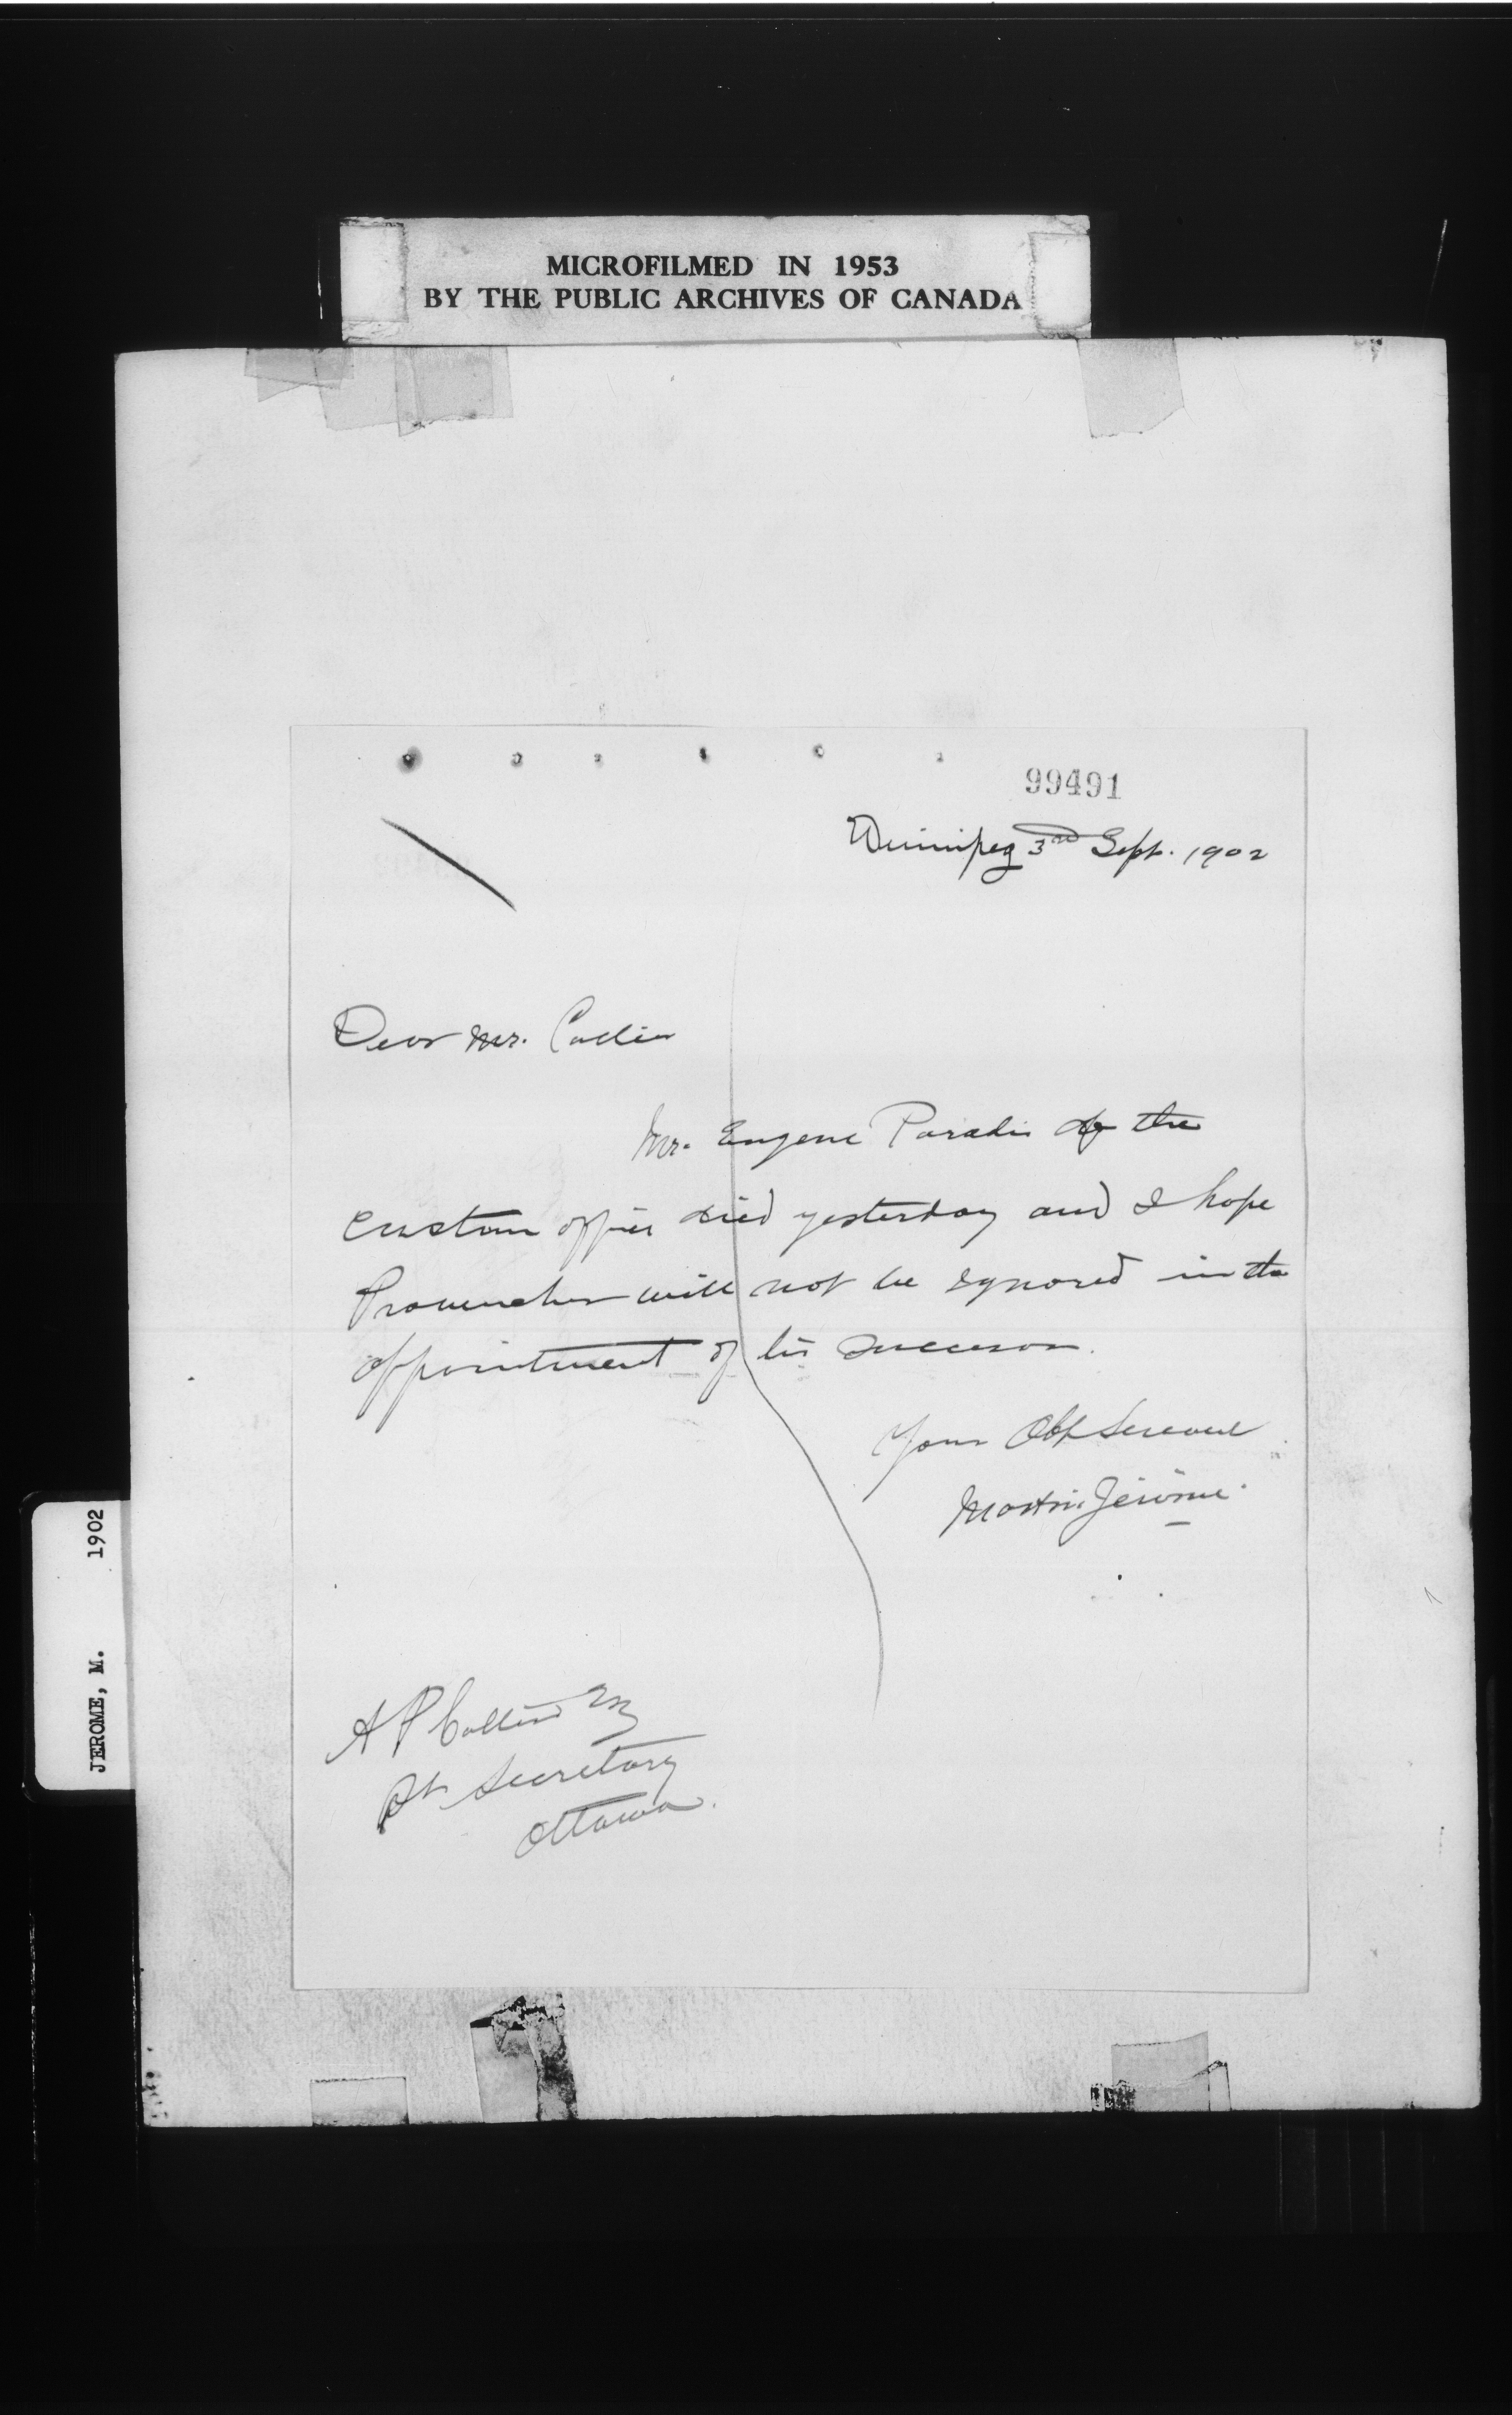 MICROFILMED IN 1953
BY THE PUBLIC ARCHIVES OF CANADA
99491
Winnipeg 3rd Sept. 1902
Dear Mr.
Mr. Eugene Paradis of the
Custom office died yesterday and I hope
Provencher will not be ignored in the
appointment of his successor.
Your Obt Servant
Martin Jérôme.
A P Collin
Pt Secretary
Ottawa.
JEROME, M. 1902